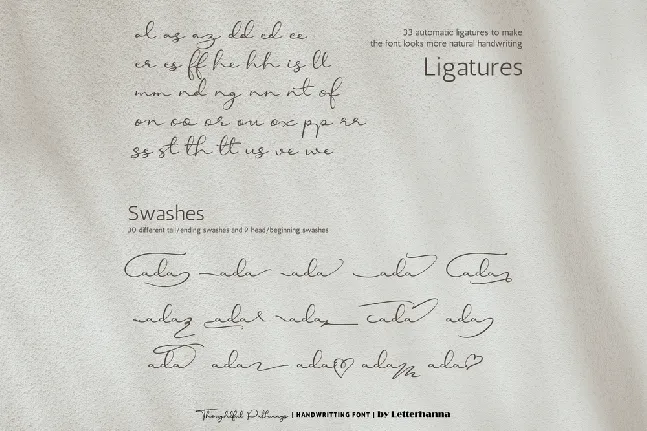 al as az dd ed ee
er es ff he hh is ll
mm nd ng nn nt of
on oo or ou ox pp rr
ss st th tt us ve we
33 automatic ligatures to make
the font looks more natural handwriting
Ligatures
Swashes
30 different tail/ending swashes and 9 head/beginning swashes
ada ada ada ada ada
ada ada ada ada ada
ada ada ada ada ada
Thoughtful Writings | HANDWRITTING FONT | by Letterhanna